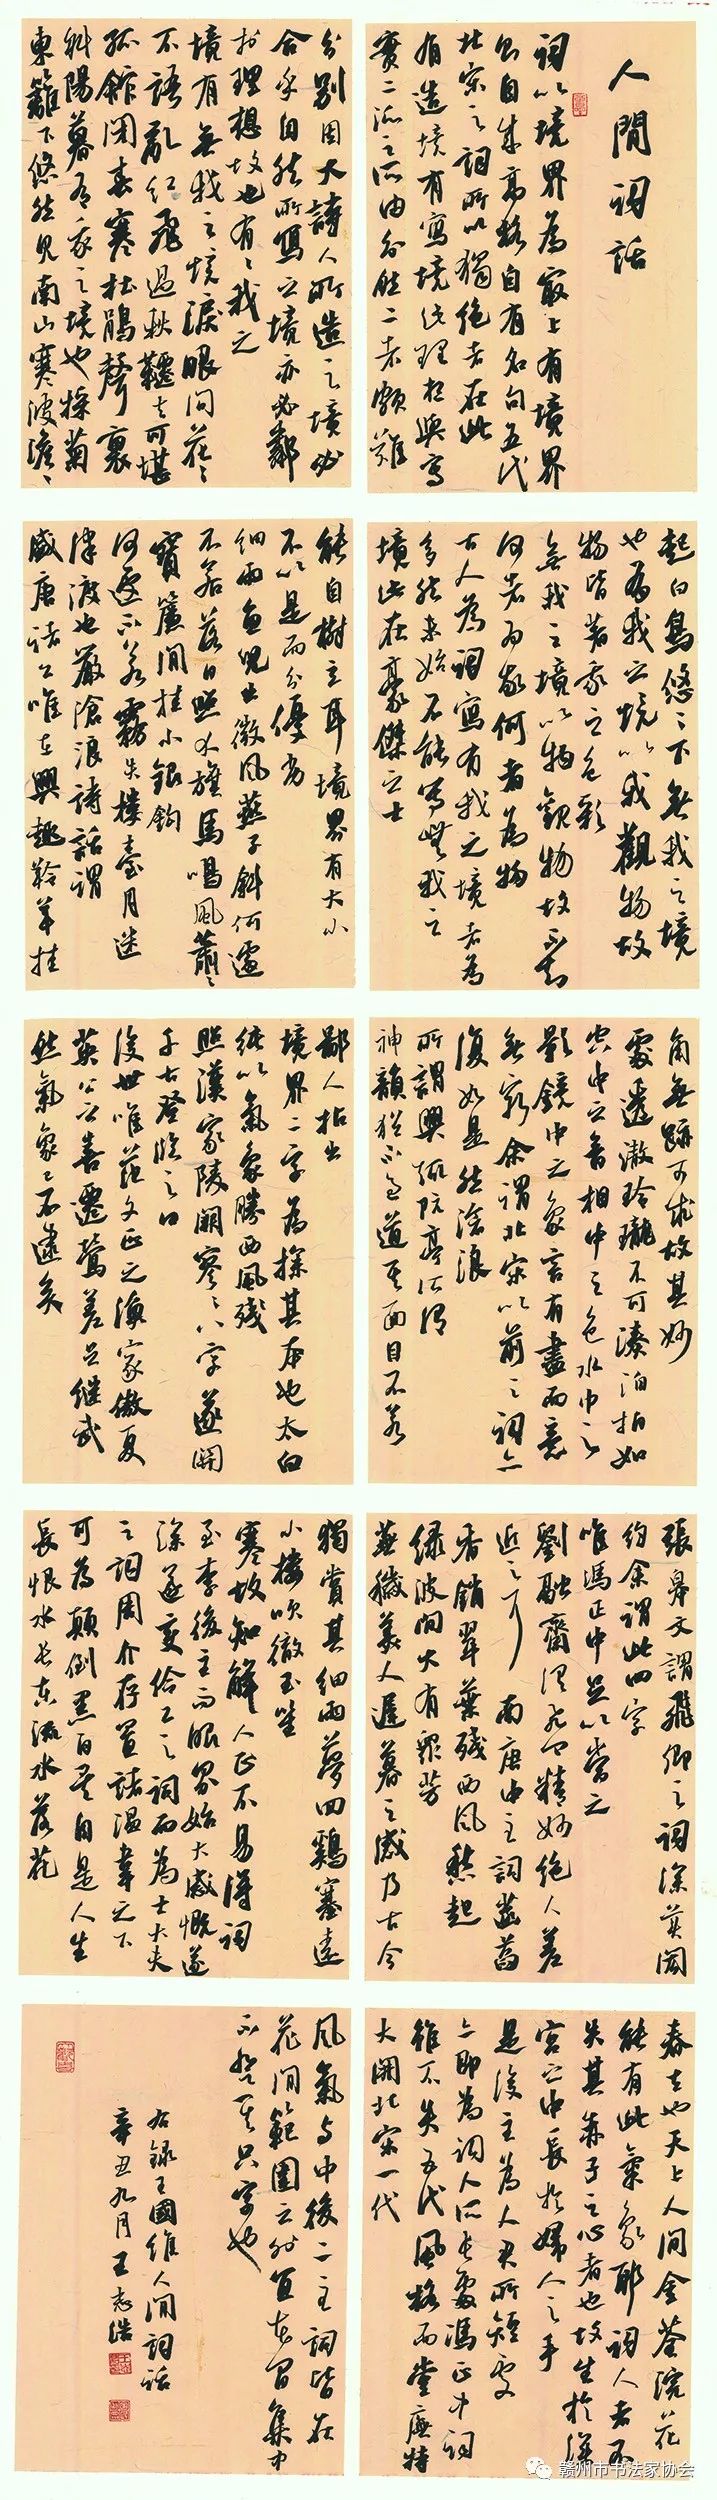 人間詞話
詞以境界為最上有境界
則自成高格自有名句五代
北宋之詞所以獨絕者在此
有造境有寫境此理想與寫
實二派之所由分然二者頗難
分別因大詩人所造之境必
合乎自然所寫之境亦必鄰
於理想故也有〻我之
境有無我之境淚眼問花〻
不語亂紅飛過秋韆去可堪
孤館閉春寒杜鵑聲裏
斜陽暮有我之境也採菊
東籬下悠然見南山寒波澹〻
起白鳥悠〻下無我之境
也有我之境以我觀物故
物皆著我之色彩
無我之境以物觀物故不知
何者為我何者為物
古人為詞寫有我之境者為
多然未始不能寫無我之
境此在豪傑之士
能自樹立耳境界有大小
不以是而分優劣
細雨魚兒出微風燕子斜何遽
不若落日照大旗馬鳴風蕭〻
寶簾閒挂小銀鉤
何遽不若霧失樓臺月迷
津渡也嚴滄浪詩話謂
盛唐諸公唯在興趣羚羊挂
角無跡可求故其妙
處透澈玲瓏不可湊泊拍如
空中之音相中之色水中之
影鏡中之象言有盡而意
無窮余謂北宋以前之詞亦
復如是然滄浪
所謂興趣阮亭所謂
神韻猶不過道其面目不若
鄙人拈出
境界二字為探其本也太白
純以氣象勝西風殘
照漢家陵闕寥〻八字遂關
千古登臨之口
後世唯范文正之漁家傲夏
英公之喜遷鶯差足繼武
然氣象已不逮矣
張皋文謂飛卿之詞深美閎
約余謂此四字
唯馮正中足以當之
劉融齋謂飛卿精妙絕人差
近之耳 南唐中主詞菡萏
香銷翠葉殘西風愁起
綠波間大有衆芳
蕪穢美人遲暮之感乃古今
獨賞其細雨夢回鷄塞遠
小樓吹徹玉笙
寒故知解人正不易得詞
至李後主而眼界始大感慨遂
深遂變伶工之詞而為士大夫
之詞周介存置諸溫韋之下
可為顛倒黑白矣自是人生
長恨水長東流水落花
春去也天上人間金荃浣花
能有此氣象耶詞人者不
失其赤子之心者也故生於深
宮之中長於婦人之手
是後主為人君所短處
亦即為詞人所長處馮正中詞
雖不失五代風格而堂廡特
大開北宋一代
風氣與中後二主詞皆在
花間範圍之外宜花間集中
不登其隻字也
右録王國維人間詞話
辛丑九月王志浩
赣州市书法家协会